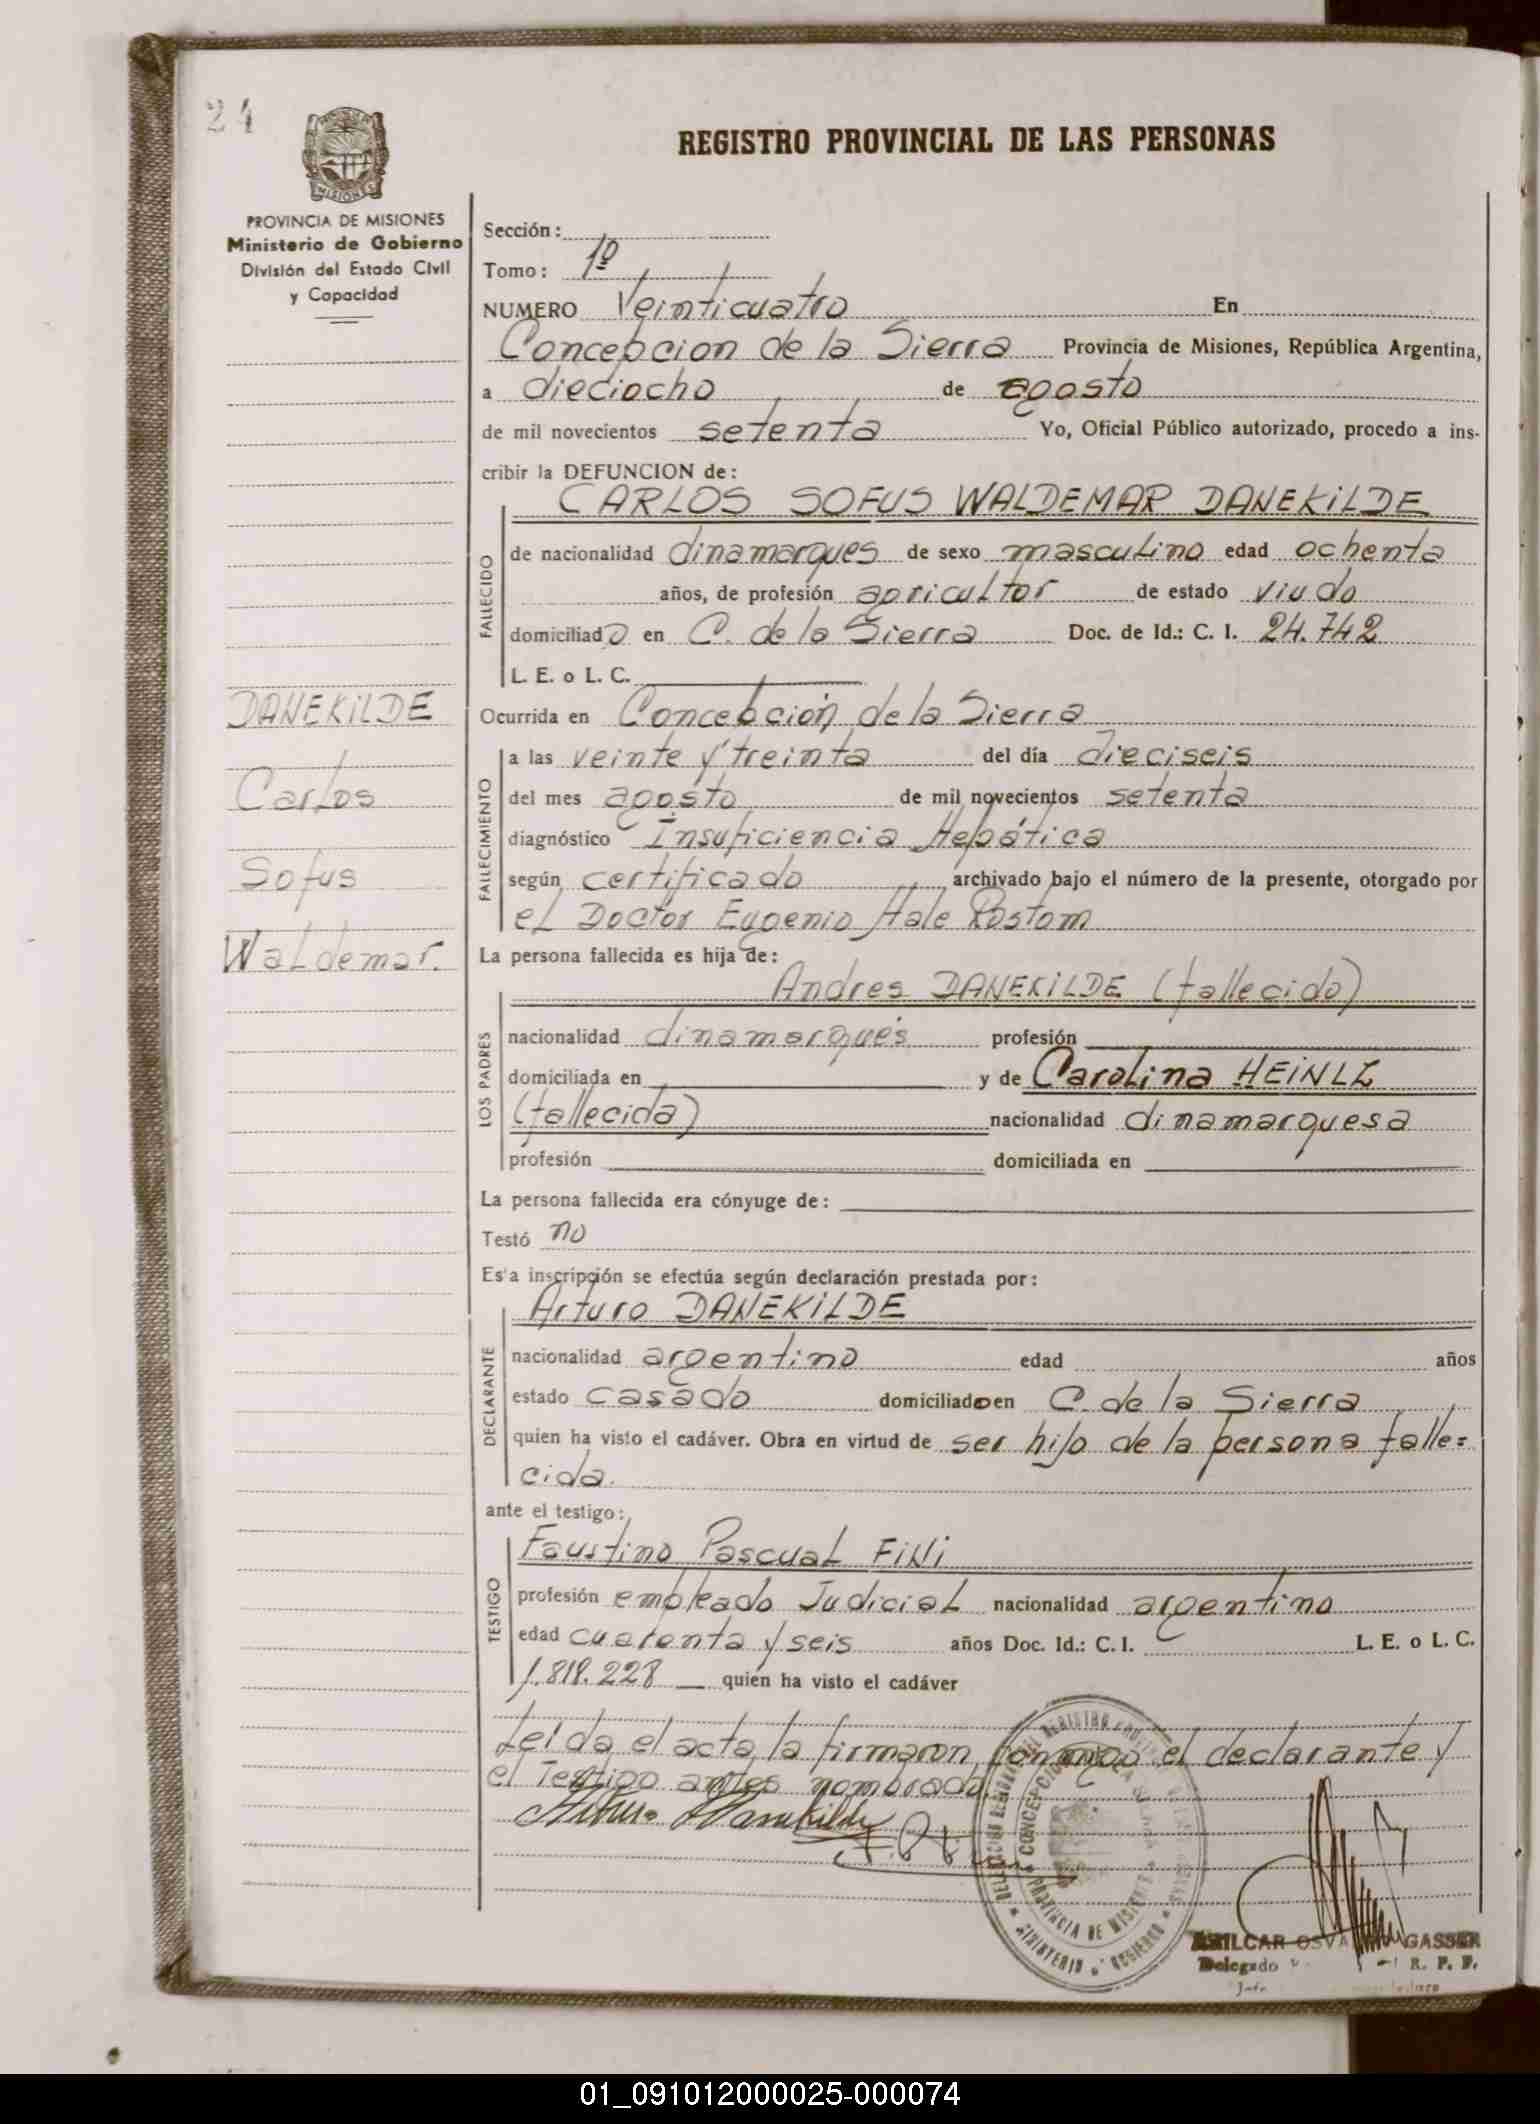 24
MISIONES
REGISTRO PROVINCIAL DE LAS PERSONAS
PROVINCIA DE MISIONES
Ministerio de Gobierno
División del Estado Civil
y Capacidad
Sección:
Tomo: 1º
NUMERO Veinticuatro En
Concepcion de la Sierra Provincia de Misiones, República Argentina,
a dieciocho de agosto
de mil novecientos setenta Yo, Oficial Público autorizado, procedo a ins-
cribir la DEFUNCION de:
CARLOS SOFUS WALDEMAR DANEKILDE
FALLECIDO
de nacionalidad dinamarques de sexo masculino edad ochenta
años, de profesión agricultor de estado viudo
domiciliado en C. de la Sierra Doc. de Id.: C. I. 24.742
L. E. o L. C.
DANEKILDE
Carlos
Sofus
Waldemar.
Ocurrida en Concepción de la Sierra
FALLECIMIENTO
a las veinte y treinta del día dieciseis
del mes agosto de mil novecientos setenta
diagnóstico Insuficiencia Hepática
según certificado archivado bajo el número de la presente, otorgado por
el Doctor Eugenio Hale Rostom
La persona fallecida es hija de:
LOS PADRES
Andres DANEKILDE (fallecido)
nacionalidad dinamarqués profesión
domiciliada en y de Carolina HEINLZ
(fallecida) nacionalidad dinamarquesa
profesión domiciliada en
La persona fallecida era cónyuge de:
Testó no
Es'a inscripción se efectúa según declaración prestada por:
DECLARANTE
Arturo DANEKILDE
nacionalidad argentino edad años
estado casado domiciliado en C. de la Sierra
quien ha visto el cadáver. Obra en virtud de ser hijo de la persona falle=
cida.
ante el testigo:
TESTIGO
Faustino Pascual FINI
profesión empleado Judicial nacionalidad argentino
edad cuarenta y seis años Doc. Id.: C. I. L. E. o L. C.
1.818.228 quien ha visto el cadáver
Leida el acta, la firmaron conmigo el declarante y
el Testigo antes nombrado.
Arturo Danekilde
CONCEPCION DE LA SIERRA
PROVINCIA DE MISIONES
MINISTERIO DE GOBIERNO
AMILCAR OSVA GASSER
Delegado R. P. P.
01_091012000025-000074